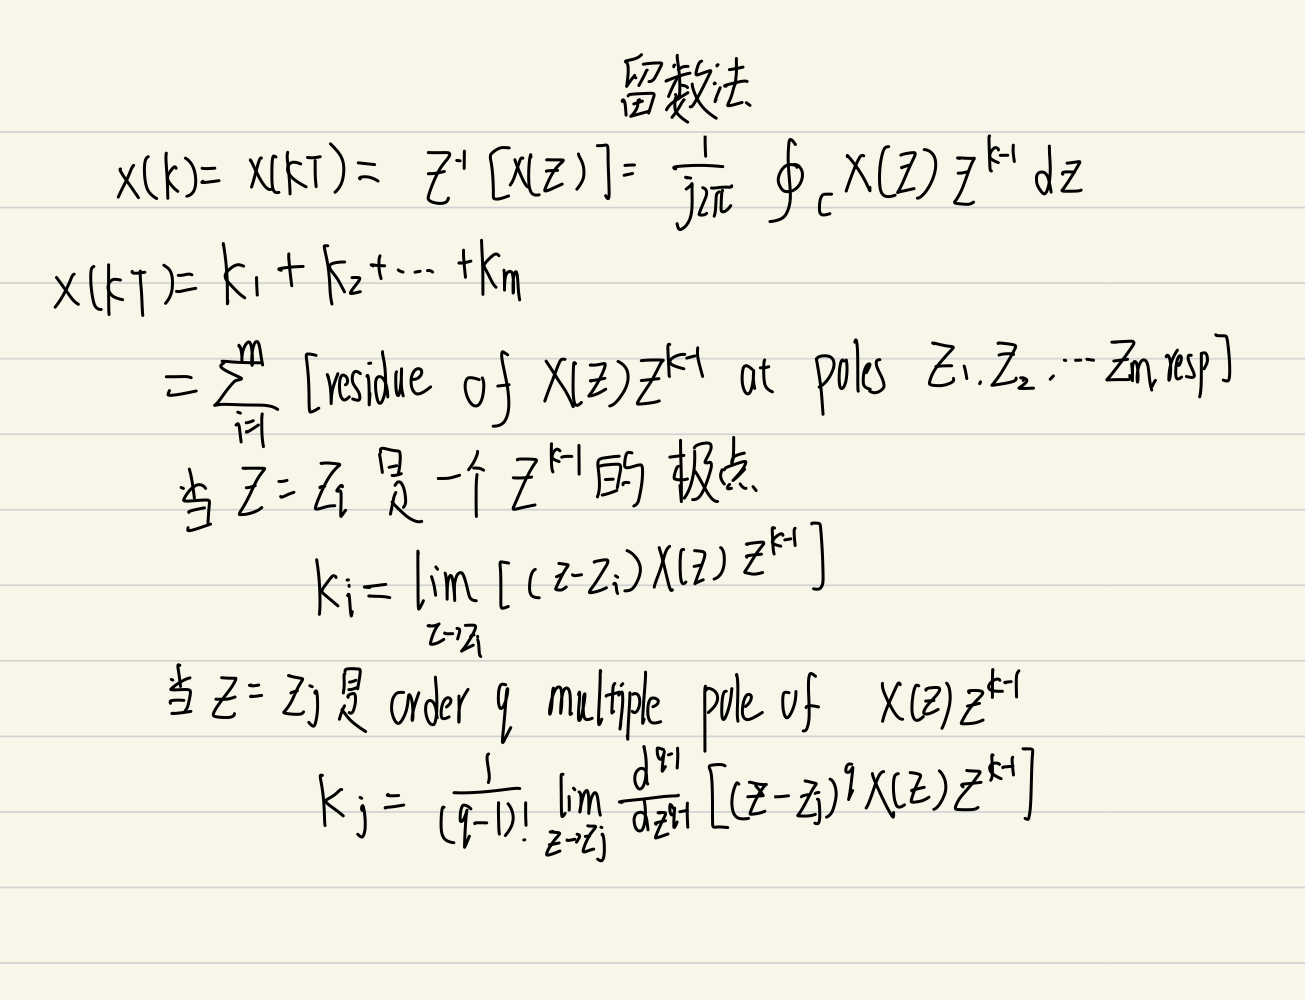 留数法
x(k)= x(kT)= Z^-1 [X(Z)]= 1/(j2π) ∮_C X(Z) Z^(k-1) dz
x(kT)= K_1 + K_2 + ··· + K_m
= Σ_(i=1)^m [residue of X(Z)Z^(k-1) at poles Z_1. Z_2. ··· Z_m, resp]
当 Z = Z_i 是一个 Z^(k-1) 的极点
K_i = lim_(z→z_i) [(z-z_i) X(z) z^(k-1)]
当 z = z_j 是 order q multiple pole of X(z)z^(k-1)
K_j = 1/(q-1)! lim_(z→z_j) d^(q-1)/dz^(q-1) [(z-z_j)^q X(z) z^(k-1)]